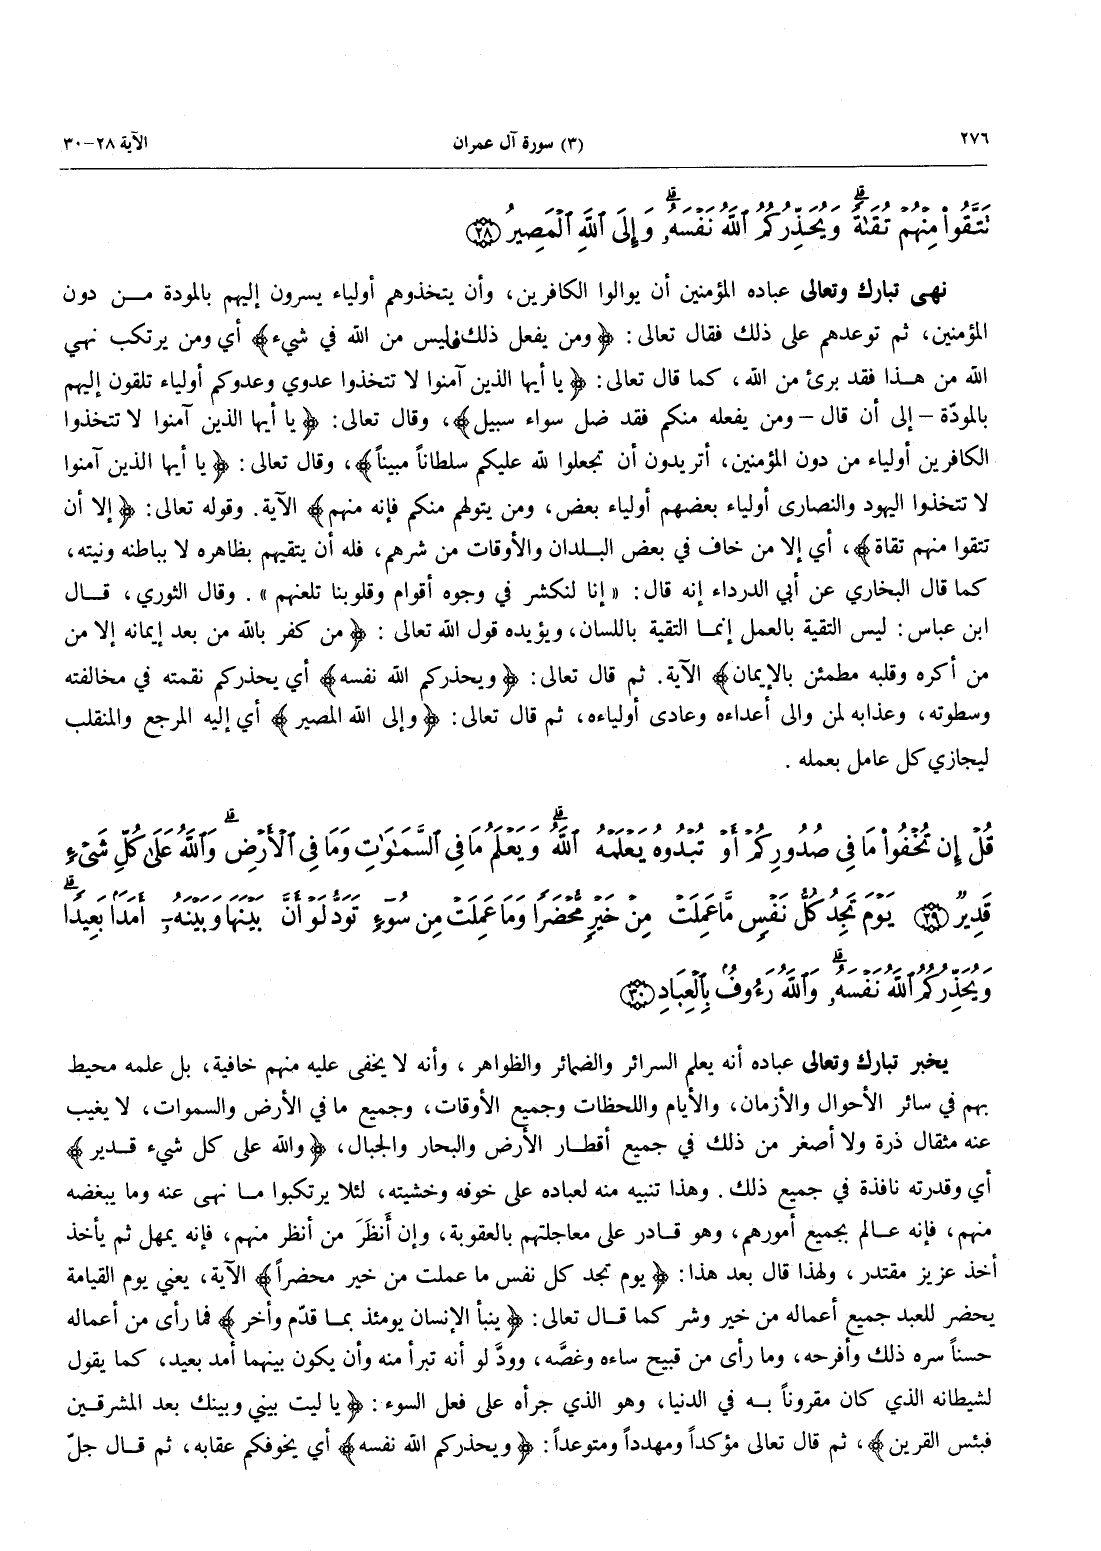 ٢٧٦ (٣) سورة آل عمران الآية ٢٨-٣٠
تَتَّقُوا۟ مِنْهُمْ تُقَىٰةً ۗ وَيُحَذِّرُكُمُ ٱللَّهُ نَفْسَهُۥ ۗ وَإِلَى ٱللَّهِ ٱلْمَصِيرُ ﴿٢٨﴾
نهى تبارك وتعالى عباده المؤمنين أن يوالوا الكافرين، وأن يتخذوهم أولياء يسرون إليهم بالمودة مـن دون
المؤمنين، ثم توعدهم على ذلك فقال تعالى: ﴿ومن يفعل ذلك فليس من الله في شيء﴾ أي ومن يرتكب نهي
الله من هـذا فقد برئ من الله، كما قال تعالى: ﴿يا أيها الذين آمنوا لا تتخذوا عدوي وعدوكم أولياء تلقون إليهم
بالمودّة – إلى أن قال – ومن يفعله منكم فقد ضل سواء سبيل﴾، وقال تعالى: ﴿يا أيها الذين آمنوا لا تتخذوا
الكافرين أولياء من دون المؤمنين، أتريدون أن تجعلوا لله عليكم سلطاناً مبيناً﴾، وقال تعالى: ﴿يا أيها الذين آمنوا
لا تتخذوا اليهود والنصارى أولياء بعضهم أولياء بعض، ومن يتولهم منكم فإنه منهم﴾ الآية. وقوله تعالى: ﴿إلا أن
تتقوا منهم تقاة﴾، أي إلا من خاف في بعض البـلدان والأوقات من شرهم، فله أن يتقيهم بظاهره لا بباطنه ونيته،
كما قال البخاري عن أبي الدرداء إنه قال: « إنا لنكشر في وجوه أقوام وقلوبنا تلعنهم » . وقال الثوري، قـال
ابن عباس: ليس التقية بالعمل إنمـا التقية باللسان، ويؤيده قول الله تعالى : ﴿من كفر بالله من بعد إيمانه إلا من
من أكره وقلبه مطمئن بالإيمان﴾ الآية. ثم قال تعالى: ﴿ويحذركم الله نفسه﴾ أي يحذركم نقمته في مخالفته
وسطوته، وعذابه لمن والى أعداءه وعادى أولياءه، ثم قال تعالى: ﴿وإلى الله المصير﴾ أي إليه المرجع والمنقلب
ليجازي كل عامل بعمله .
قُلْ إِن تُخْفُوا۟ مَا فِى صُدُورِكُمْ أَوْ تُبْدُوهُ يَعْلَمْهُ ٱللَّهُ ۗ وَيَعْلَمُ مَا فِى ٱلسَّمَـٰوَٰتِ وَمَا فِى ٱلْأَرْضِ ۗ وَٱللَّهُ عَلَىٰ كُلِّ شَىْءٍ
قَدِيرٌ ﴿٢٩﴾ يَوْمَ تَجِدُ كُلُّ نَفْسٍ مَّا عَمِلَتْ مِنْ خَيْرٍ مُّحْضَرًا وَمَا عَمِلَتْ مِن سُوٓءٍ تَوَدُّ لَوْ أَنَّ بَيْنَهَا وَبَيْنَهُۥٓ أَمَدًۢا بَعِيدًا ۗ
وَيُحَذِّرُكُمُ ٱللَّهُ نَفْسَهُۥ ۗ وَٱللَّهُ رَءُوفٌۢ بِٱلْعِبَادِ ﴿٣٠﴾
يخبر تبارك وتعالى عباده أنه يعلم السرائر والضمائر والظواهر ، وأنه لا يخفى عليه منهم خافية، بل علمه محيط
بهم في سائر الأحوال والأزمان، والأيام واللحظات وجميع الأوقات، وجميع ما في الأرض والسموات، لا يغيب
عنه مثقال ذرة ولا أصغر من ذلك في جميع أقطـار الأرض والبحار والجبال، ﴿والله على كل شيء قـدير﴾
أي وقدرته نافذة في جميع ذلك . وهذا تنبيه منه لعباده على خوفه وخشيته، لئلا يرتكبوا مـا نهى عنه وما يبغضه
منهم، فإنه عـالم بجميع أمورهم، وهو قـادر على معاجلتهم بالعقوبة، وإن أَنظَرَ من أنظر منهم، فإنه يمهل ثم يأخذ
أخذ عزيز مقتدر ، ولهذا قال بعد هذا: ﴿يوم تجد كل نفس ما عملت من خير محضراً﴾ الآية، يعني يوم القيامة
يحضر للعبد جميع أعماله من خير وشر كما قـال تعالى: ﴿ينبأ الإنسان يومئذ بمـا قدّم وأخر﴾ فما رأى من أعماله
حسناً سره ذلك وأفرحه، وما رأى من قبيح ساءه وغصَّه، وودَّ لو أنه تبرأ منه وأن يكون بينهما أمد بعيد، كما يقول
لشيطانه الذي كان مقروناً بـه في الدنيا، وهو الذي جرأه على فعل السوء : ﴿يا ليت بيني وبينك بعد المشرقين
فبئس القرين﴾، ثم قال تعالى مؤكداً ومهدداً ومتوعداً: ﴿ويحذركم الله نفسه﴾ أي يخوفكم عقابه، ثم قـال جلّ